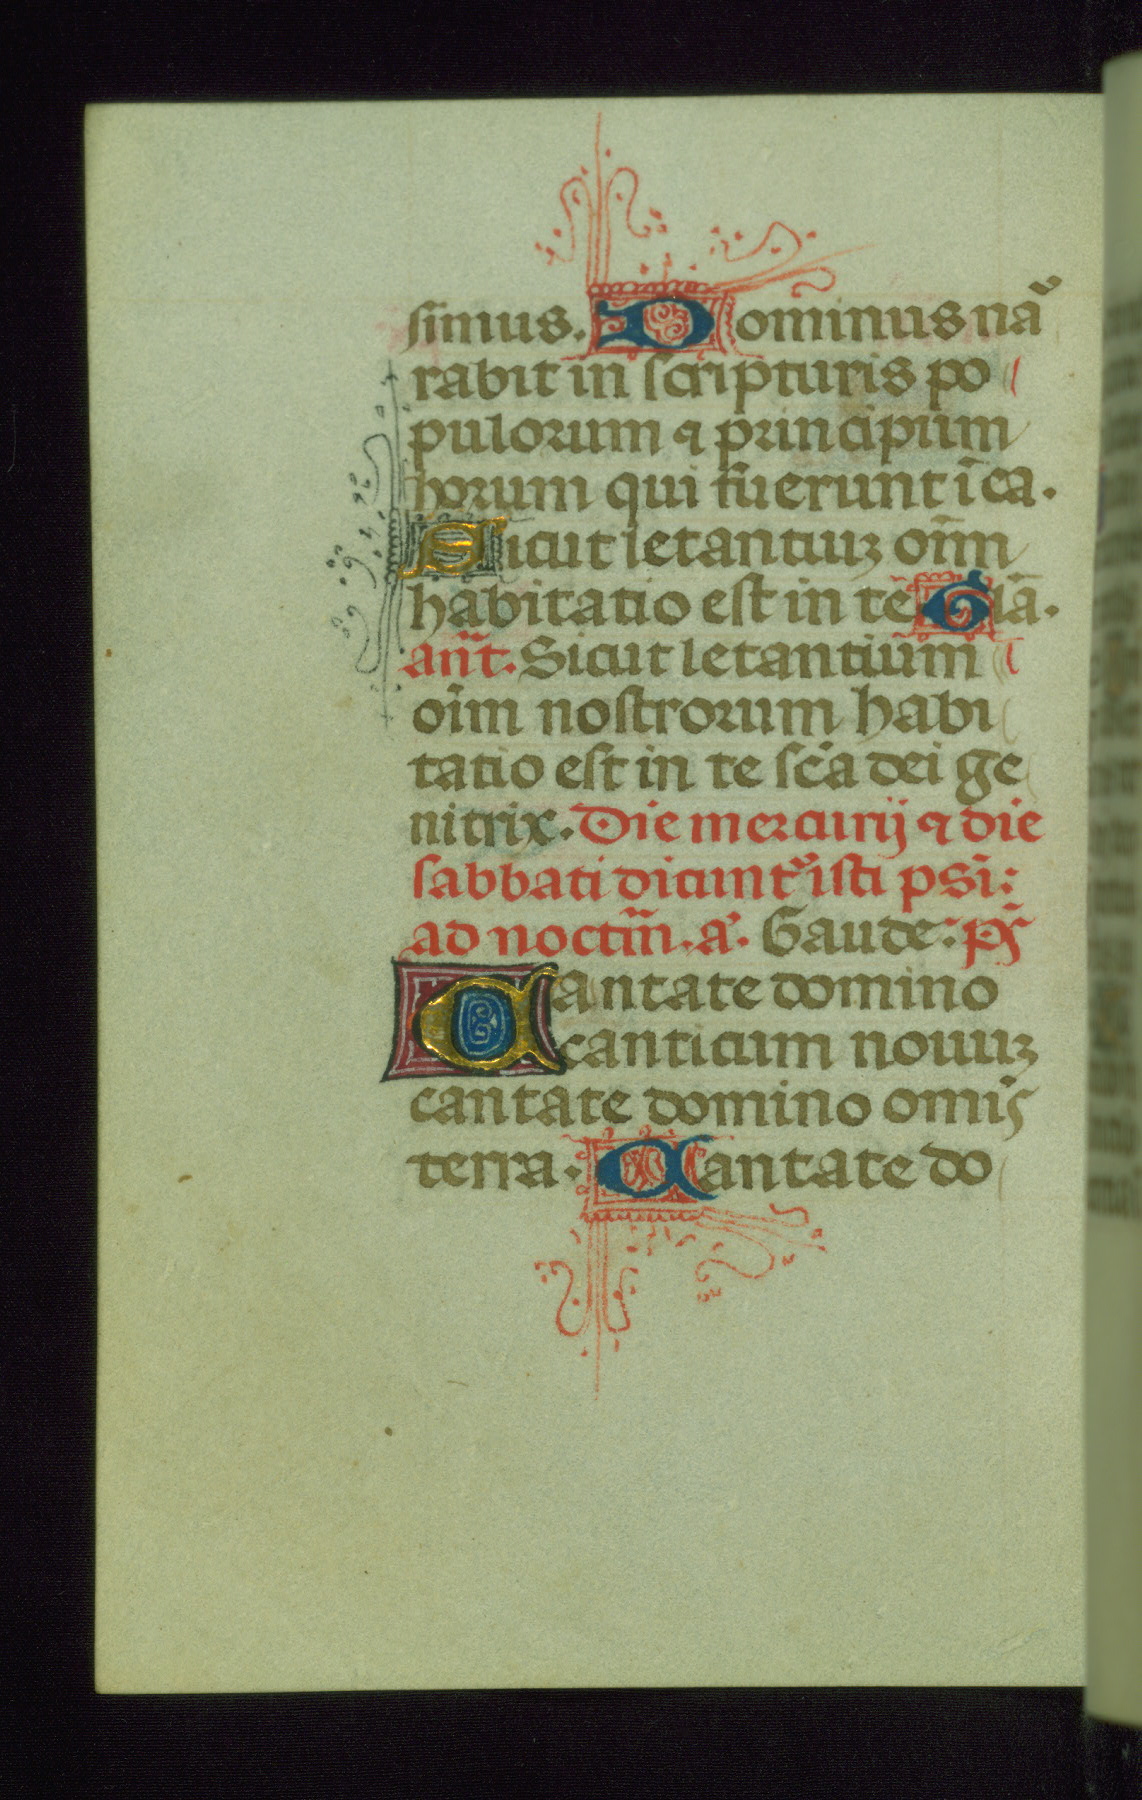 simus. Dominus nar̃
rabit in scripturis po
pulorum ⁊ principum
horum qui fuerunt ī ea.
Sicut letantiuꝫ om̄m
habitatio est in te. Glā.
an̄t. Sicut letantium
oīm nostrorum habi
tatio est in te scā dei ge
nitrix. Die mercurij ⁊ die
sabbati dicunt᷑ isti psī:
ad noct̄m. a. Gaude. ps̄
Cantate domino
canticum nouuꝫ
cantate domino omīs
terra. Cantate do